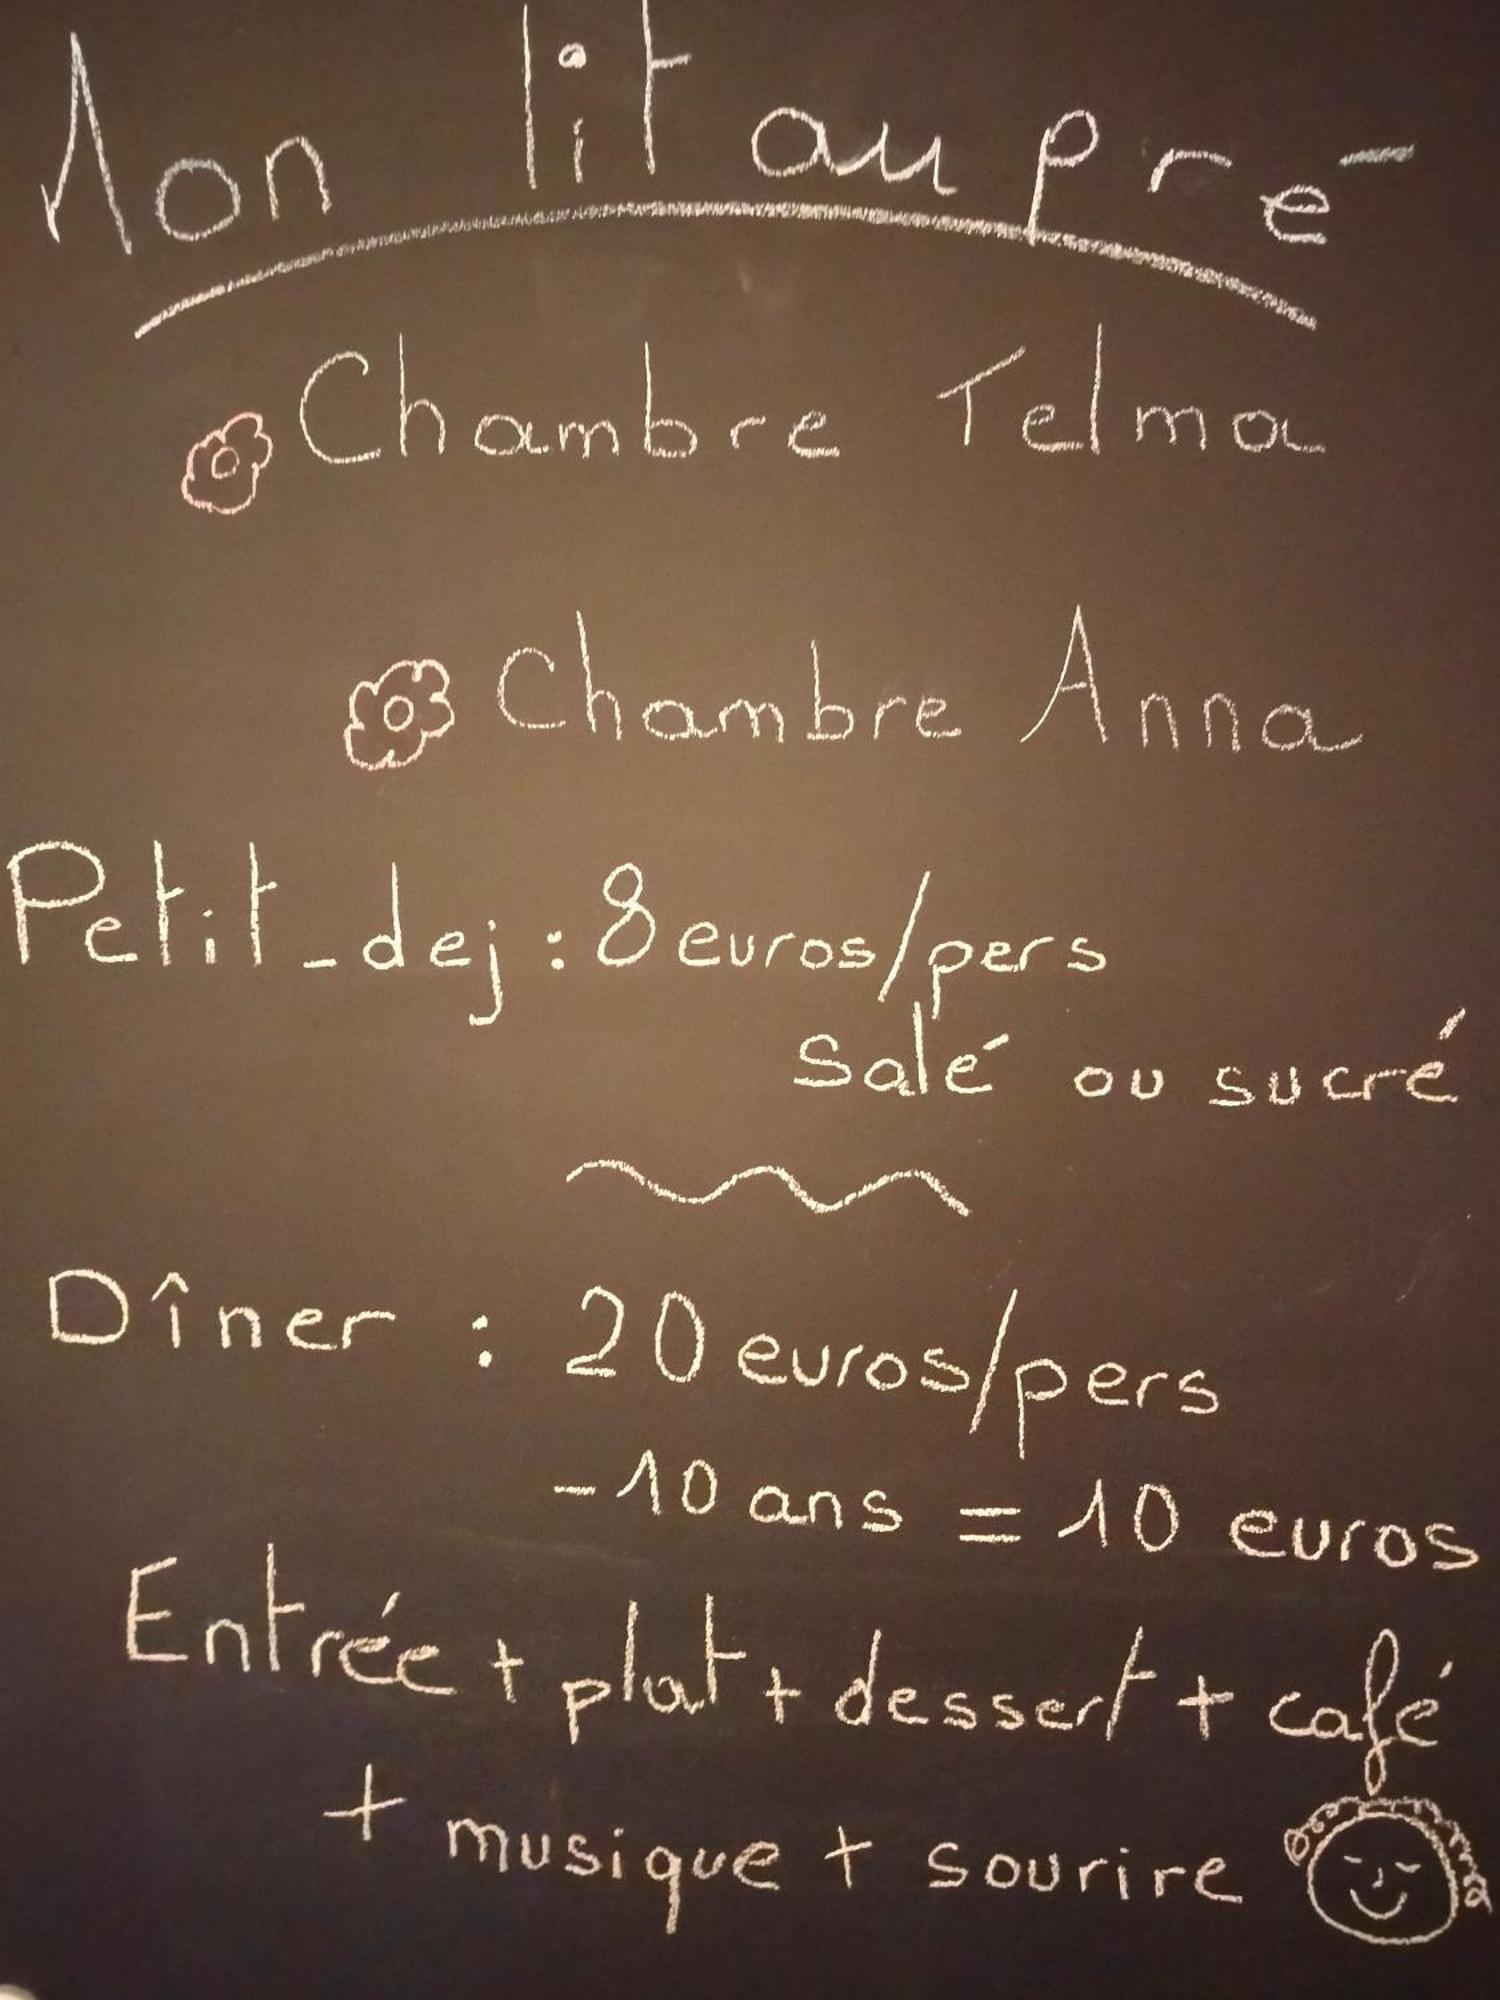 Mon lit au pré
Chambre Telma
Chambre Anna
Petit-dej : 8 euros/pers
salé ou sucré
Dîner : 20 euros/pers
-10 ans = 10 euros
Entrée + plat + dessert + café
+ musique + sourire